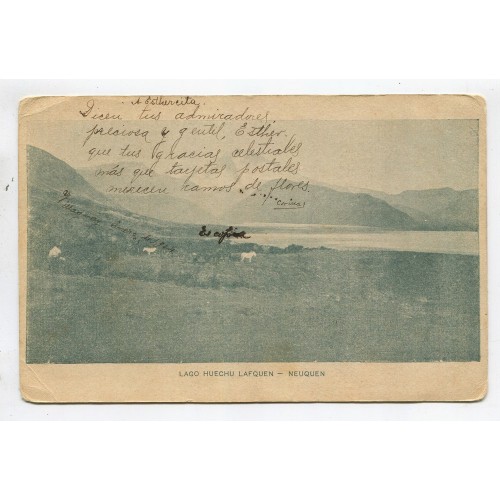 A Esthercita
Dicen tus admiradores,
preciosa y gentil, Esther,
que tus gracias celestiales
más que tarjetas postales
merecen ramos de flores.
Corina
LAGO HUECHU LAFQUEN — NEUQUEN